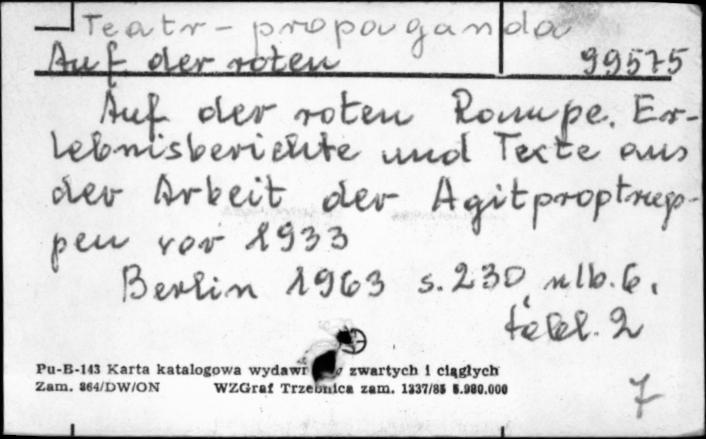 Teatr - propaganda
Auf der roten 99575
Auf der roten Rampe. Er-
lebnisberichte und Texte aus
der Arbeit der Agitproptrup-
pen vor 1933
Berlin 1963 s. 230 nlb. 6,
tabl. 2
Pu-B-143 Karta katalogowa zwartych i ciągłych
Zam. 864/DW/ON WZGraf Trzebnica zam. 1337/85 5.980.000
7